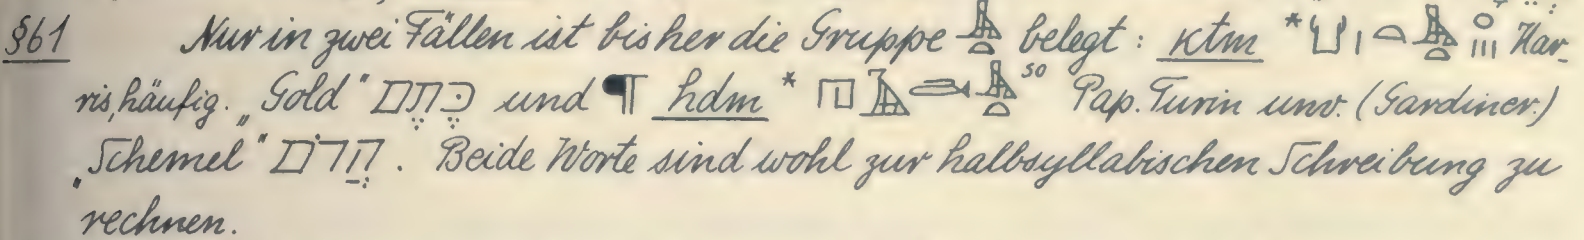 §61 Nur in zwei Fällen ist bisher die Gruppe belegt: ktm * Har-
ris, häufig. „Gold“ כֶּתֶם und ¶ hdm * so Pap. Turin unv. (Gardiner.)
„Schemel“ הֲדֹם. Beide Worte sind wohl zur halbsyllabischen Schreibung zu
rechnen.